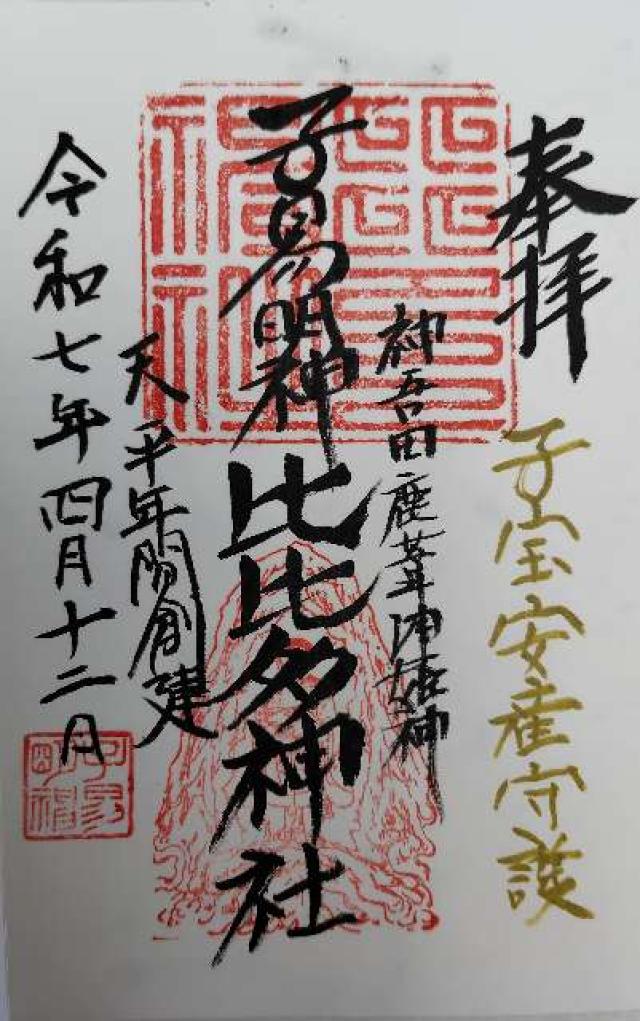 奉拝
子宝安産守護
神吾田鹿葦津姫神
子易明神
比比多神社
天平年間創建
令和七年四月十二日